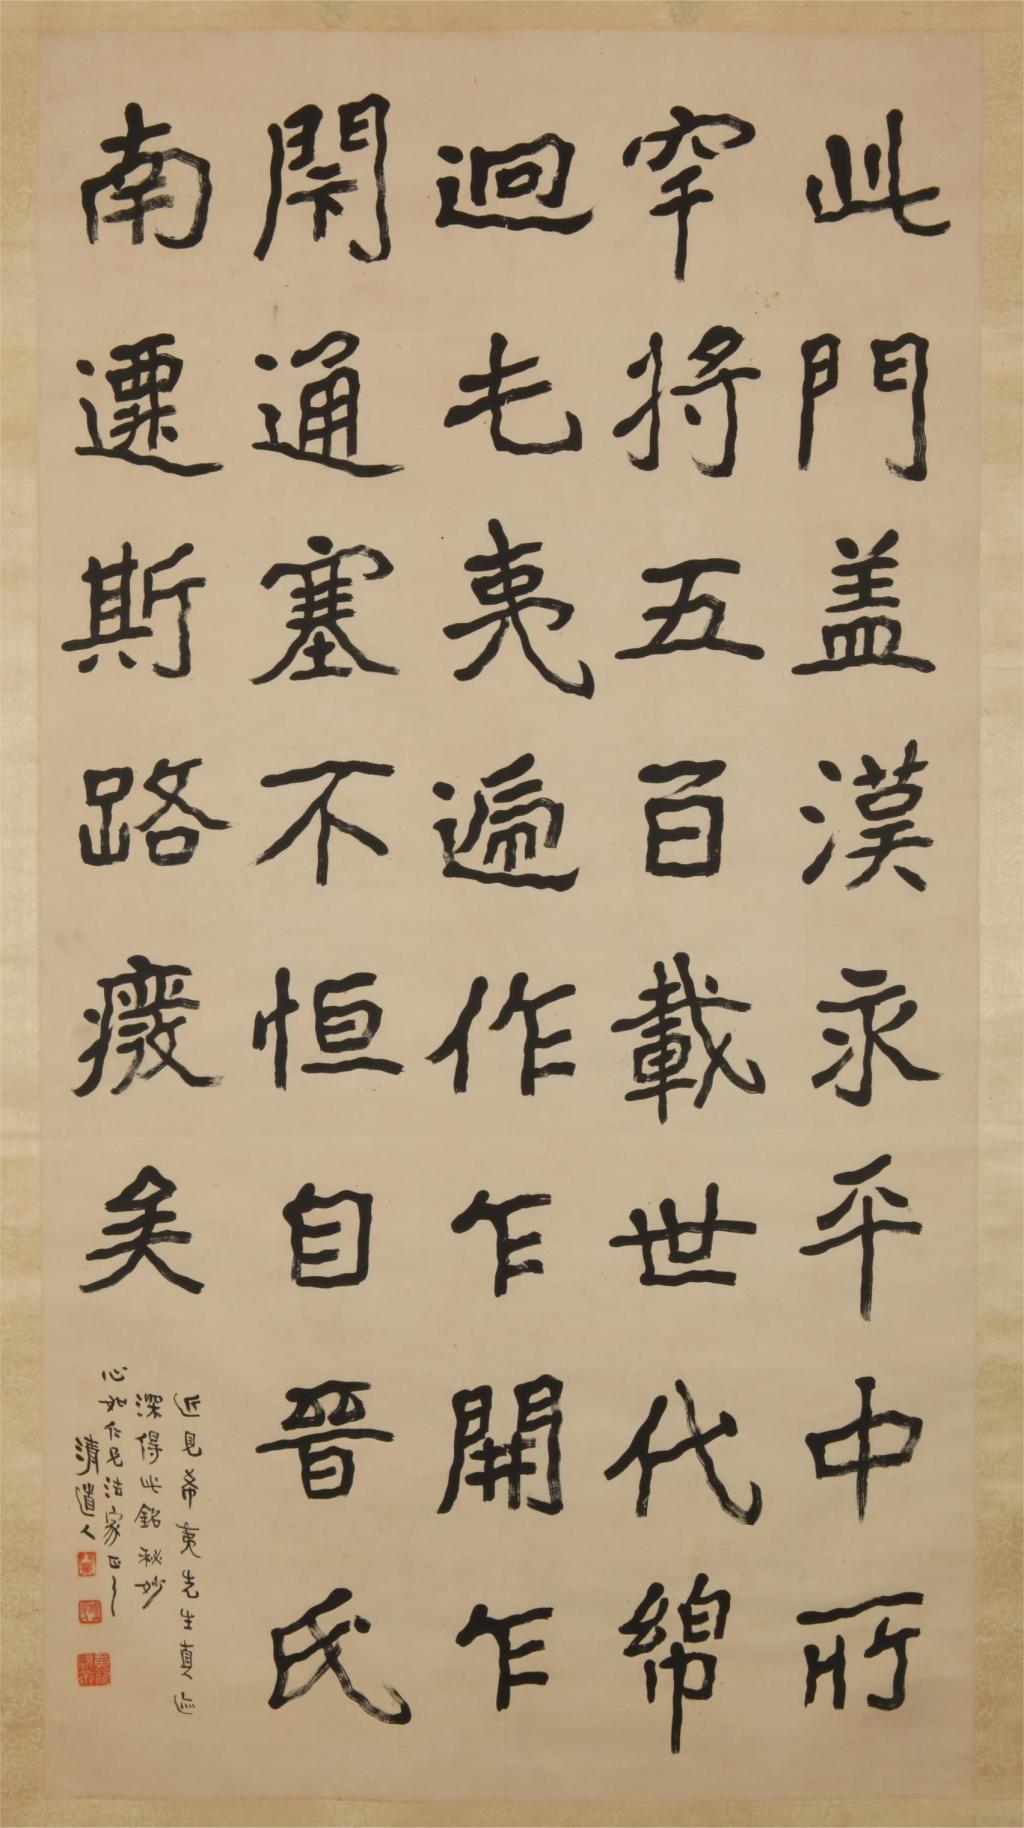 此門盖漢永平中所
穿將五百載世代綿
迴屯夷遞作乍開乍
閇通塞不恒自晉氏
南遷斯路廢矣
近見希夷先生真迹
深得此銘秘妙
心如仁兄法家正之
清道人